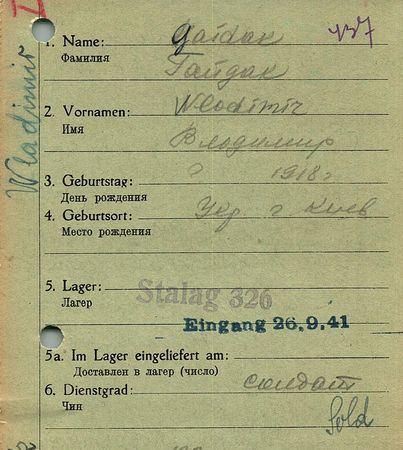 I
Wladimir
1. Name: Gaidak 437
Фамилия Гайдак
2. Vornamen: Wlodimir
Имя Владимир
3. Geburtstag: ? 1918 г
День рождения
4. Geburtsort: Укр г Киев
Место рождения
5. Lager: Stalag 326
Лагер
Eingang 26.9.41
5a. Im Lager eingeliefert am:
Доставлен в лагер (число)
6. Dienstgrad: солдат
Чин Sold